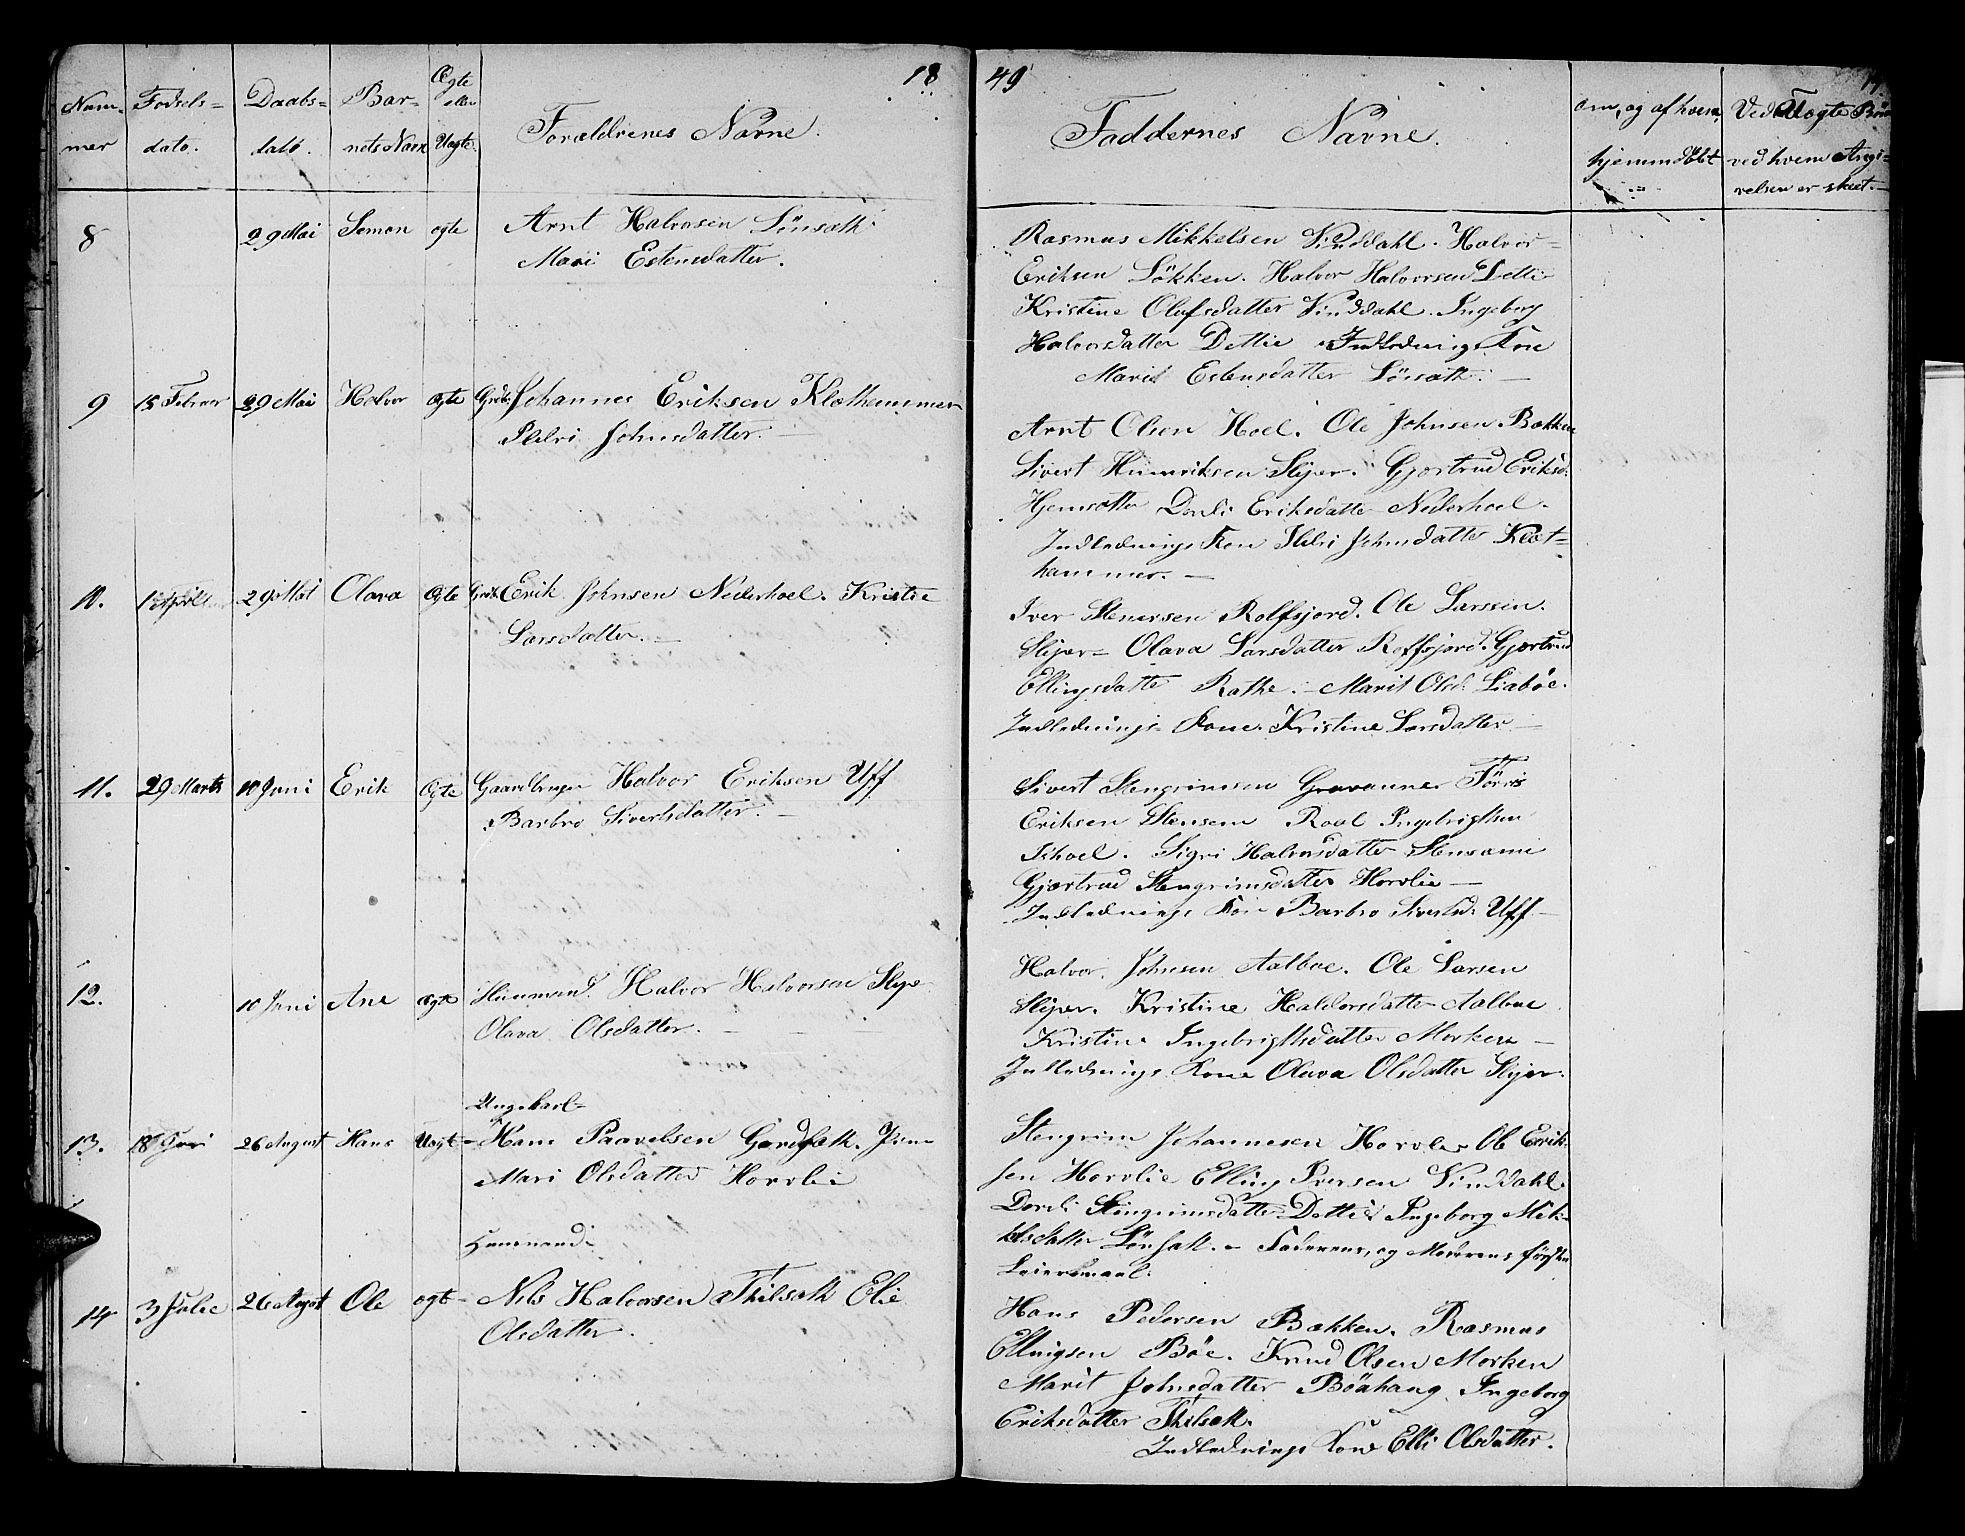 18 49
Num- Fodsels- Daabs- Bar- Ægte eller
mer dato. dato. nets Navn Uægte.
Forældrenes Navne.
Faddernes Navne.
om, og af hvem,
hjemmedöbt
Ved Uægte Börn
ved hvem Angi-
velsen er skeet.-
8 29 Mai Semon ægte Arnt Halvorsen Lönsæth.
Mari Estensdatter.
Rasmus Mikkelsen Vinddahl. Halvor
Eriksen Lökken. Halvor Halvorsen Detli
Kristine Olafsdatter Vinddahl. Ingeborg
Halvorsdatter Dettie Indlednings Kone
Marit Estensdatter Lönsæth.
9 15 Februar 29 Mai Halvor ægte Grdb. Johannes Eriksen Klæthammer
Ildri Johnsdatter.
Arnt Olsen Hoel. Ole Johnsen Bækken
Sivert Hinnriksen Slyer. Gjærtrud Eriksd.
Hjemsætter Dordi Eriksdatter Nederhoel.
Indlednings Kone Ildri Johnsdatter Klæt-
hammer.
10. 29 Mai Olava Ægte Grdb. Erik Johnsen Nederhoel. Kristie
Larsdatter.
Iver Stenersen Rolfsjord. Ole Larssen
Slyer Olava Larsdatter Rolfsjord. Gjærtrud
Ellingsdatte Rathe. Marit Olsd. Liaböe.
Indlednings Kone Kristine Larsdatter
11. 29 Marts 10 Juni Erik Ægte Gaardbruger Halvor Eriksen Uff
Barbro Sivertsdatter.
Sivert Stengrimsen Gravanner Törris
Eriksen Stensem Roal Ingebrigtsen
Ishoel. Sigri Halvorsdatter Stensann
Gjærtrud Stengrimsdatter Horvlie
Indlednings Kone Barbro Sivertsd. Uff
12. 10 Juni Ane ægte Huusmand. Halvor Halvorsen Slye
Olava Olsdatter.
Halvor Johnsen Aalbue. Ole Larsen
Slyer. Kristine Haldorsdatter Aalbue
Kristine Ingebrigtsdatter Morken
Indlednings Kone Olava Olsdatter Slyer.
13. 18 Juni 26 August Hans Uægte Ungekarl
Hans Paavelsen Gardsæth. Pien
Mari Olsdatter Horvlie
Stengrim Johannesen Horvlie Ole Erik-
sen Horvlie Elling Iversen Vinddahl.
Dordi Stengrimsdatter Dettie Ingeborg Mik-
kelsdatter Lönsæth. Faderens, og Moderens förste
Leiermaal.
14 3 Julie 26 August Ole ægte Huusmand
Nils Halvorsen Thilsæth Elie
Olsdatter.
Hans Pedersen Bækken. Rasmus
Ellingsen Böe. Knud Olsen Morken
Marit Johnsdatter Böahaug Ingeborg
Eriksdatter Thilsæth.
Indlednings Kone Elli Olsdatter.